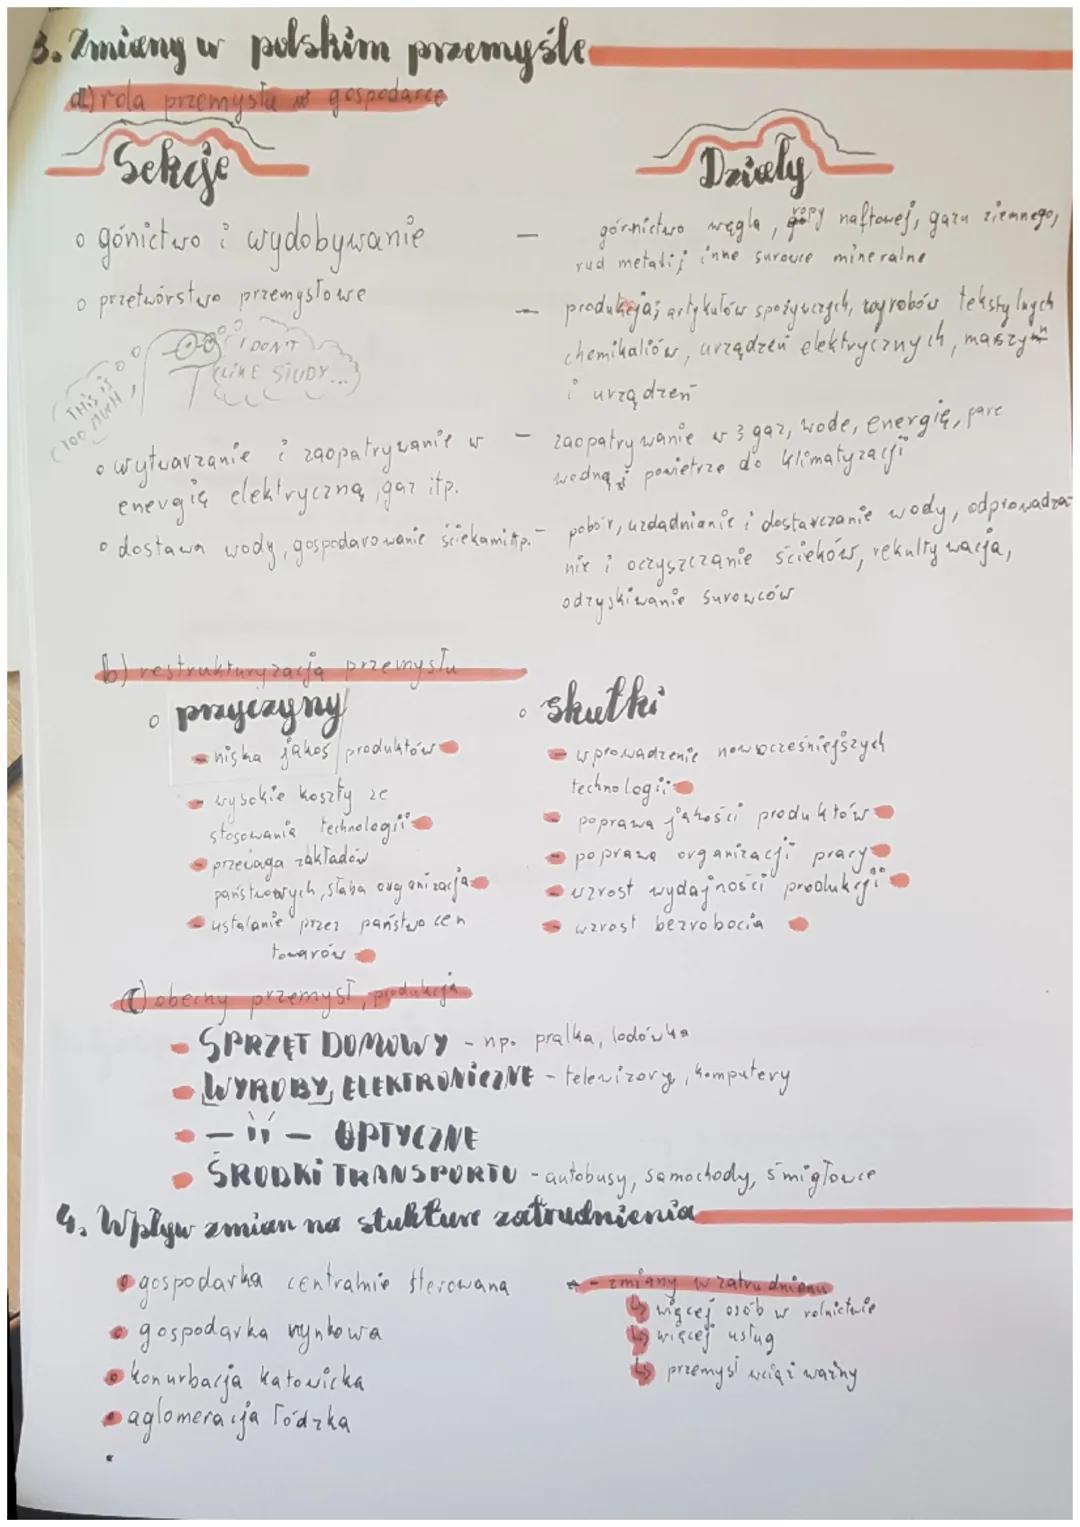 3. Zmiany w polskim przemyśle
a) rola przemysłu w gospodarce
Sekcje
Działy
o górnictwo i wydobywanie
— górnictwo węgla, ropy naftowej, gazu ziemnego,
rud metali; inne surowce mineralne
o przetwórstwo przemysłowe
— produkcja; artykułów spożywczych, wyrobów tekstylnych
chemikaliów, urządzeń elektrycznych, maszyn
i urządzeń
I DON'T
LIKE STUDY...
THIS IS
TOO MUCH
o wytwarzanie i zaopatrywanie w
energię elektryczną, gaz itp.
— zaopatrywanie w gaz, wode, energię, pare
wodną i powietrze do klimatyzacji
o dostawa wody, gospodarowanie ściekami itp.
— pobór, uzdadnianie i dostarczanie wody, odprowadza-
nie i oczyszczanie ścieków, rekultywacja,
odzyskiwanie surowców
b) restrukturyzacja przemysłu
o przyczyny
- niska jakoś produktów
- wysokie koszty ze
stosowania technologii
- przewaga zakładów
państwowych, słaba organizacja
- ustalanie przez państwo cen
towarów
o skutki
- wprowadzenie nowocześniejszych
technologii
- poprawa jakości produktów
- poprawa organizacji pracy
- wzrost wydajności produkcji
- wzrost bezrobocia
c) obecny przemysł, produkcja
- SPRZĘT DOMOWY - np. pralka, lodówka
- WYROBY ELEKTRONICZNE - telewizory, komputery
- — 11 — OPTYCZNE
- ŚRODKI TRANSPORTU - autobusy, samochody, śmigłowce
4. Wpływ zmian na stukture zatrudnienia
o gospodarka centralnie sterowana
o gospodarka rynkowa
o konurbacja katowicka
o aglomeracja łódzka
- zmiany w zatrudnieniu
↳ więcej osób w rolnictwie
↳ więcej usług
↳ przemysł wciąż ważny